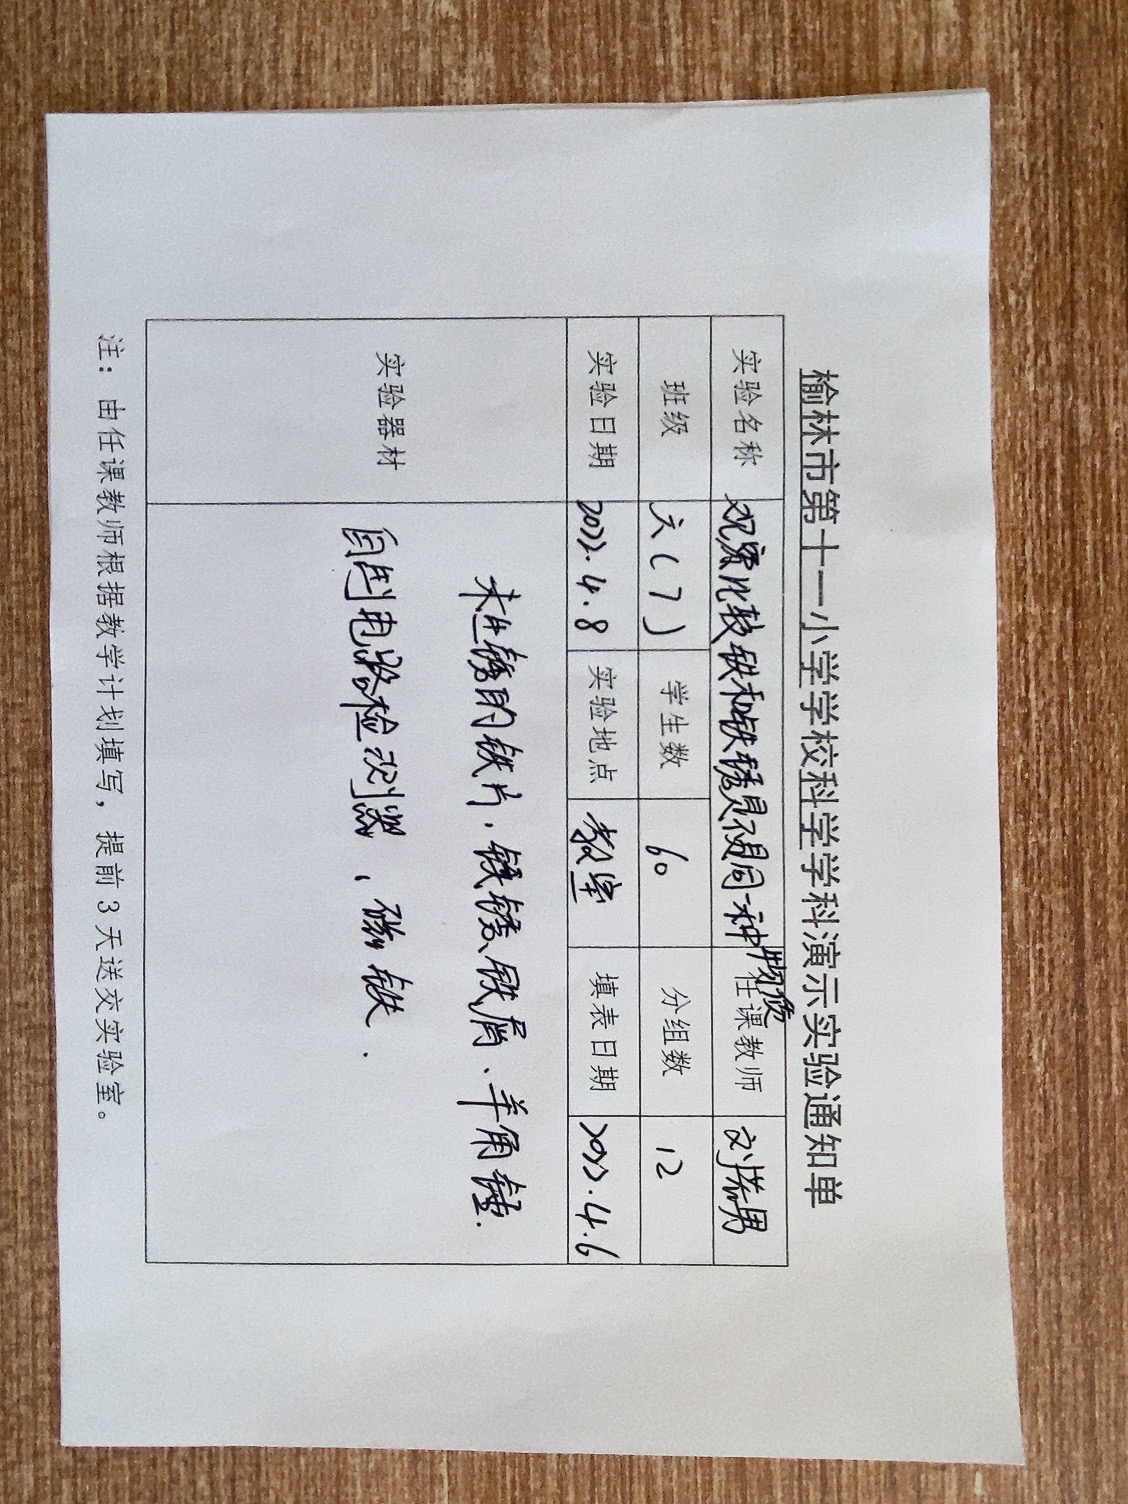 榆林市第十一小学学校科学学科演示实验通知单
实验名称 观察比较铁和铁锈是不是同一种物质 任课教师 刘
班级 六(7) 学生数 60 分组数 12
实验日期 2022.4.8 实验地点 教室 填表日期 2022.4.6
实验器材 未生锈的铁片、铁锈、铁屑、羊角锤.
自制电路检测器、磁铁.
注：由任课教师根据教学计划填写，提前3天送交实验室。